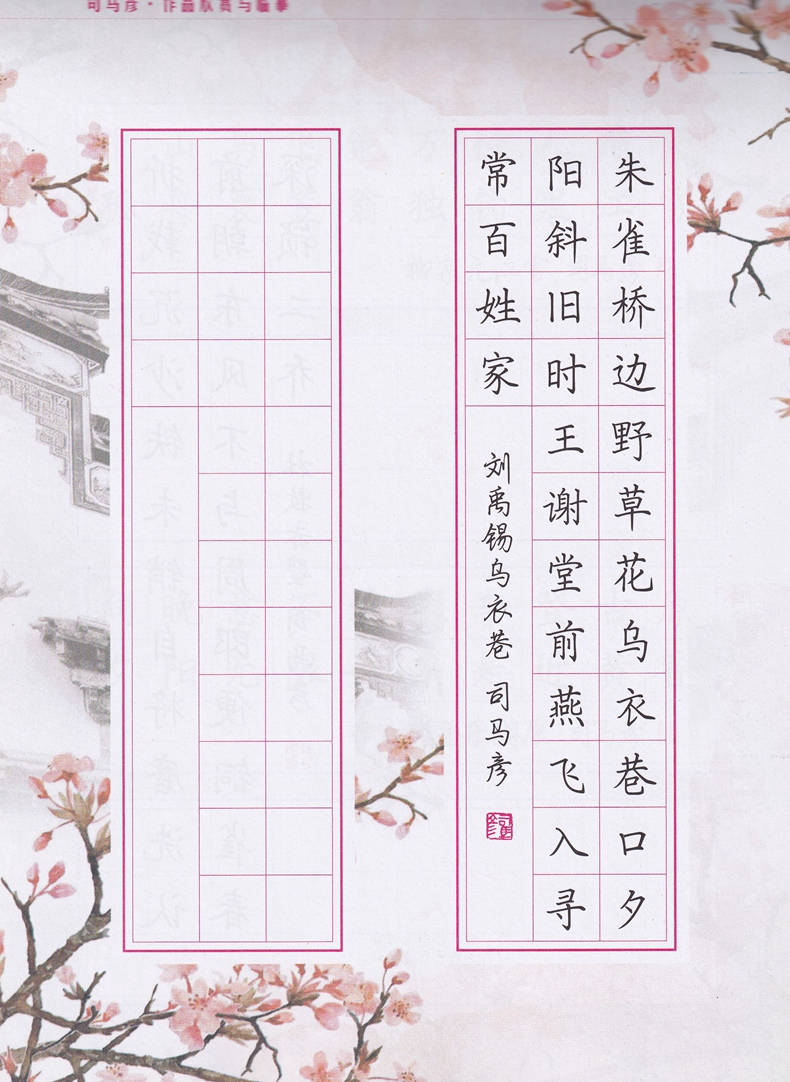 司马彦·作品欣赏与临摹
朱雀桥边野草花乌衣巷口夕
阳斜旧时王谢堂前燕飞入寻
常百姓家
刘禹锡乌衣巷 司马彦